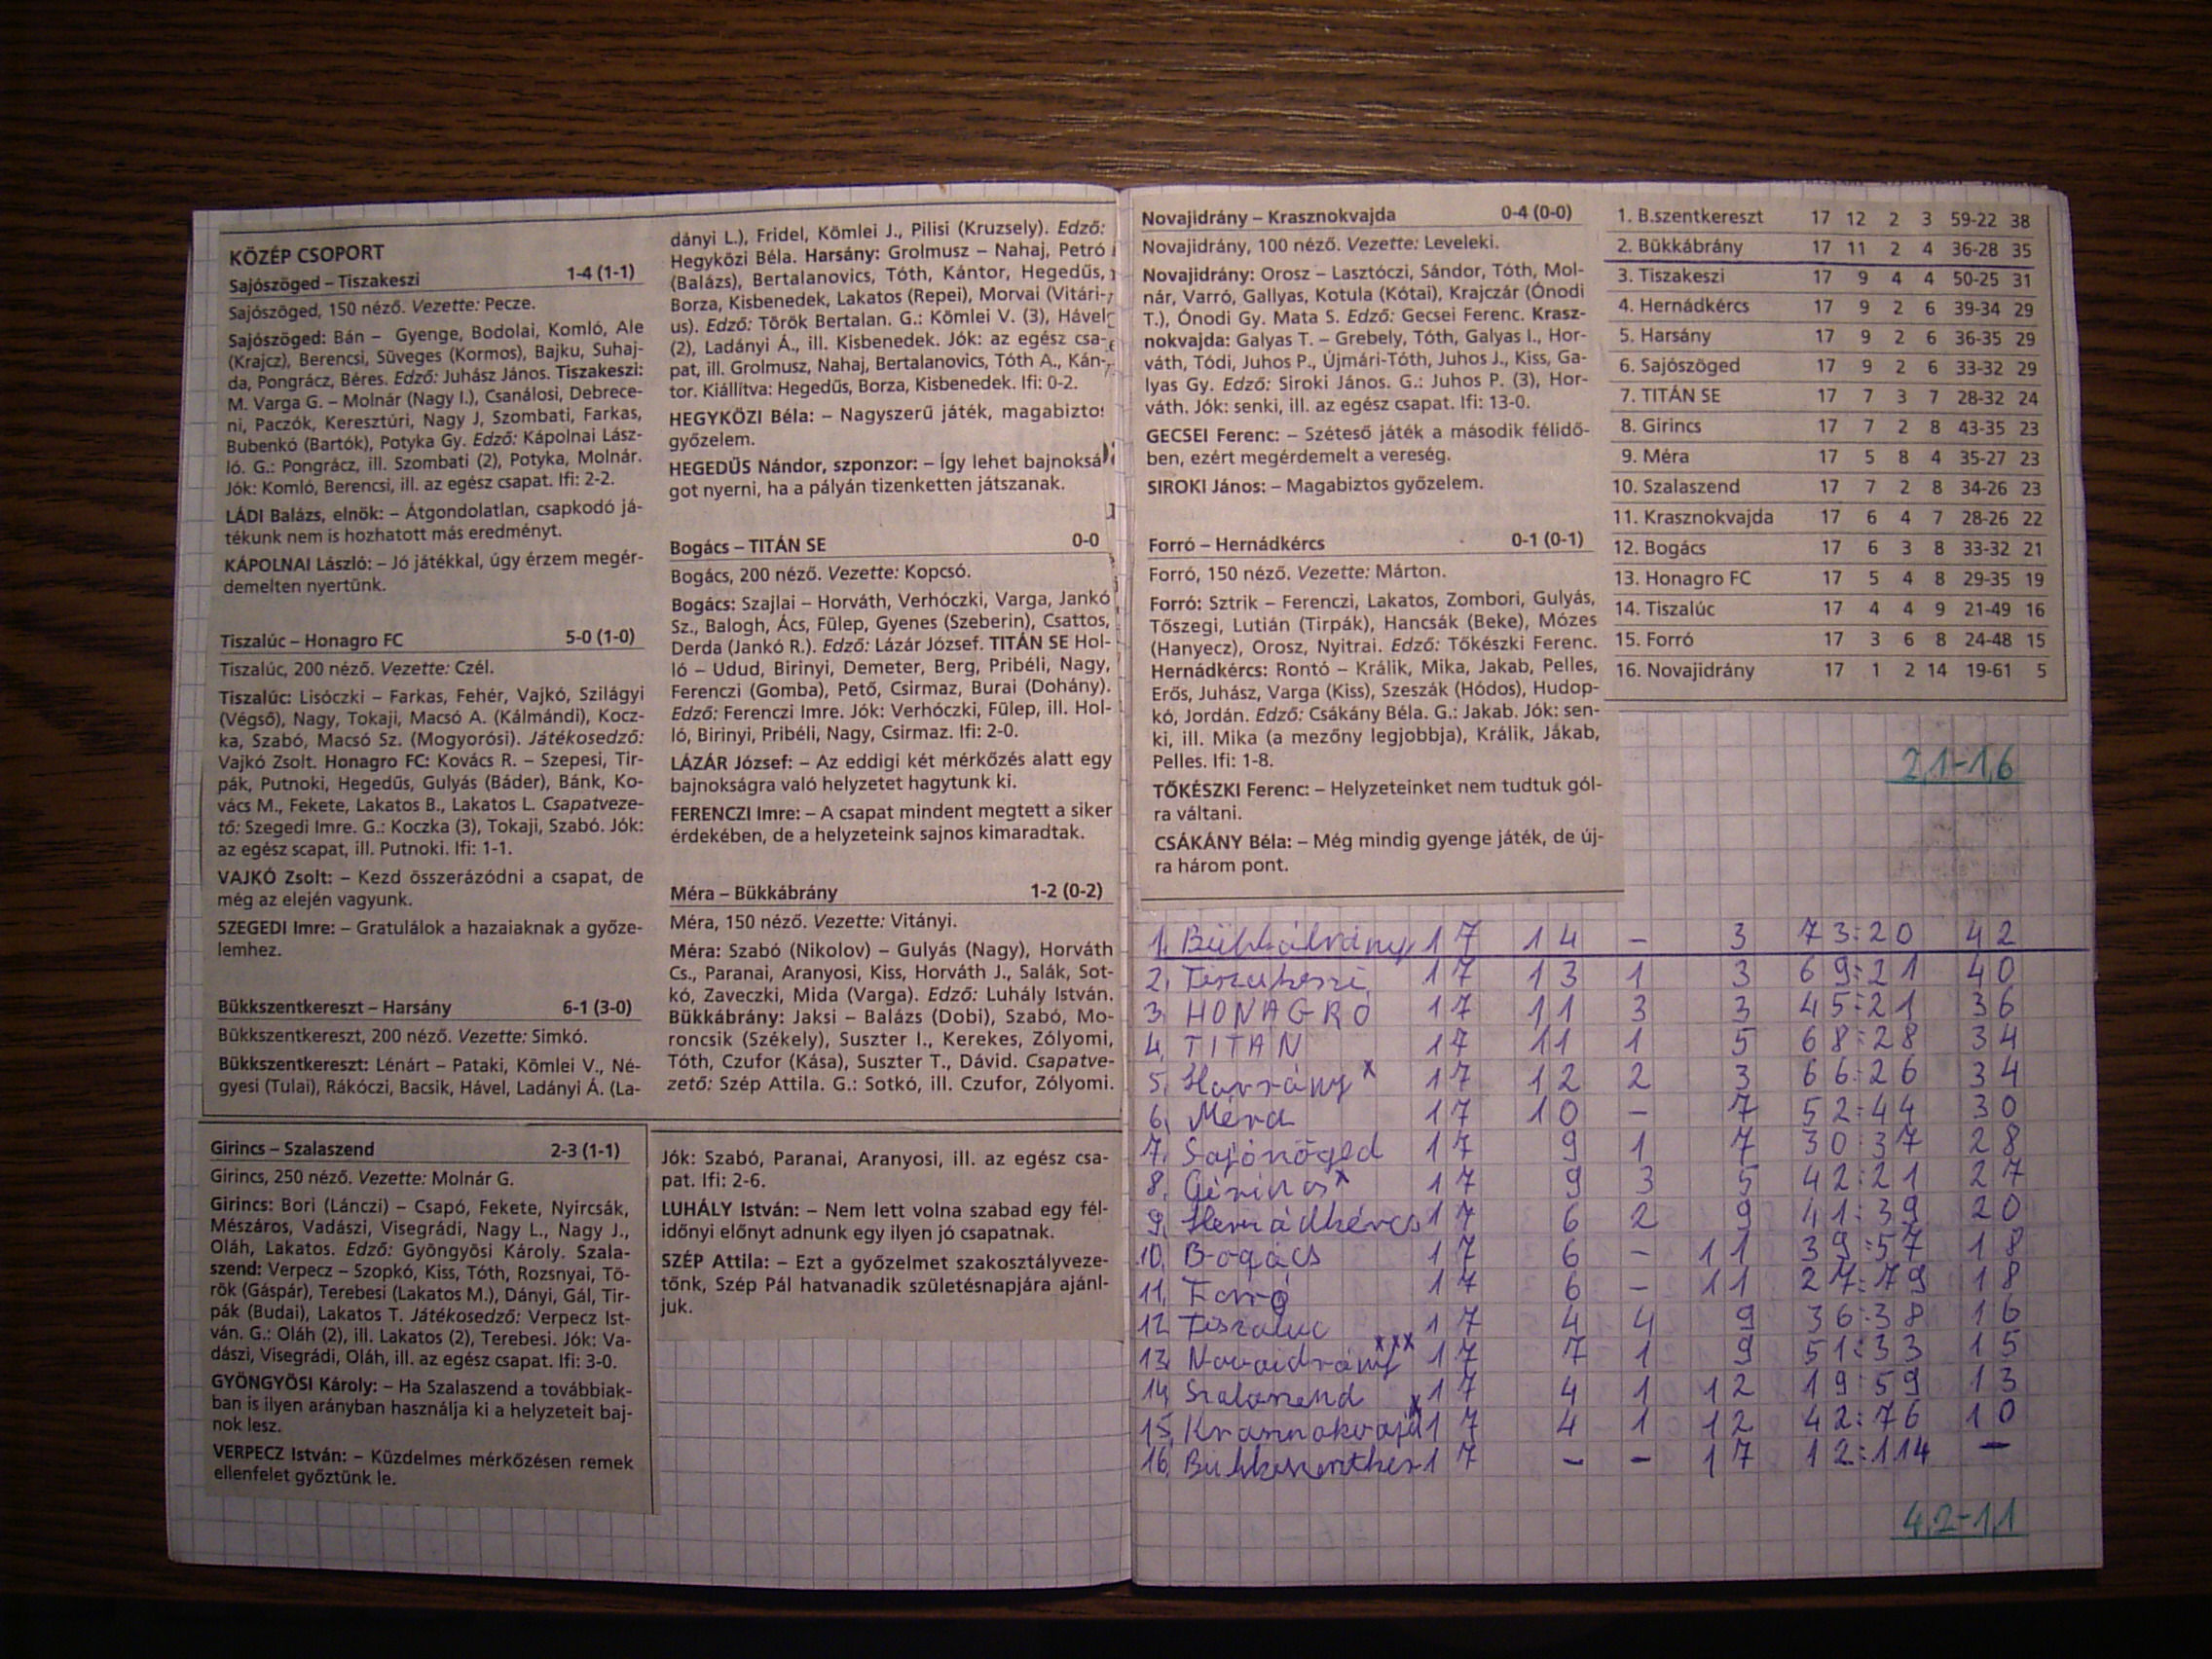 KÖZÉP CSOPORT
Sajószöged – Tiszakeszi 1-4 (1-1)
Sajószöged, 150 néző. Vezette: Pecze.
Sajószöged: Bán – Gyenge, Bodolai, Komló, Ale
(Krajcz), Berencsi, Süveges (Kormos), Bajku, Suhaj-
da, Pongrácz, Béres. Edző: Juhász János. Tiszakeszi:
M. Varga G. – Molnár (Nagy I.), Csanálosi, Debrece-
ni, Paczók, Keresztúri, Nagy J, Szombati, Farkas,
Bubenkó (Bartók), Potyka Gy. Edző: Kápolnai Lász-
ló. G.: Pongrácz, ill. Szombati (2), Potyka, Molnár.
Jók: Komló, Berencsi, ill. az egész csapat. Ifi: 2-2.
LÁDI Balázs, elnök: – Átgondolatlan, csapkodó já-
tékunk nem is hozhatott más eredményt.
KÁPOLNAI László: – Jó játékkal, úgy érzem megér-
demelten nyertünk.
Tiszalúc – Honagro FC 5-0 (1-0)
Tiszalúc, 200 néző. Vezette: Czél.
Tiszalúc: Lisóczki – Farkas, Fehér, Vajkó, Szilágyi
(Végső), Nagy, Tokaji, Macsó A. (Kálmándi), Kocz-
ka, Szabó, Macsó Sz. (Mogyorósi). Játékosedző:
Vajkó Zsolt. Honagro FC: Kovács R. – Szepesi, Tir-
pák, Putnoki, Hegedűs, Gulyás (Báder), Bánk, Ko-
vács M., Fekete, Lakatos B., Lakatos L. Csapatveze-
tő: Szegedi Imre. G.: Koczka (3), Tokaji, Szabó. Jók:
az egész scapat, ill. Putnoki. Ifi: 1-1.
VAJKÓ Zsolt: – Kezd összerázódni a csapat, de
még az elején vagyunk.
SZEGEDI Imre: – Gratulálok a hazaiaknak a győze-
lemhez.
Bükkszentkereszt – Harsány 6-1 (3-0)
Bükkszentkereszt, 200 néző. Vezette: Simkó.
Bükkszentkereszt: Lénárt – Pataki, Kömlei V., Né-
gyesi (Tulai), Rákóczi, Bacsik, Hável, Ladányi Á. (La-
dányi L.), Fridel, Kömlei J., Pilisi (Kruzsely). Edző:
Hegyközi Béla. Harsány: Grolmusz – Nahaj, Petró
(Balázs), Bertalanovics, Tóth, Kántor, Hegedűs,
Borza, Kisbenedek, Lakatos (Repei), Morvai (Vitári-
us). Edző: Török Bertalan. G.: Kömlei V. (3), Hável
(2), Ladányi Á., ill. Kisbenedek. Jók: az egész csa-
pat, ill. Grolmusz, Nahaj, Bertalanovics, Tóth A., Kán-
tor. Kiállítva: Hegedűs, Borza, Kisbenedek. Ifi: 0-2.
HEGYKÖZI Béla: – Nagyszerű játék, magabiztos
győzelem.
HEGEDŰS Nándor, szponzor: – Így lehet bajnoksá
got nyerni, ha a pályán tizenketten játszanak.
Bogács – TITÁN SE 0-0
Bogács, 200 néző. Vezette: Kopcsó.
Bogács: Szajlai – Horváth, Verhóczki, Varga, Jankó
Sz., Balogh, Ács, Fülep, Gyenes (Szeberin), Csattos,
Derda (Jankó R.). Edző: Lázár József. TITÁN SE Hol-
ló – Udud, Birinyi, Demeter, Berg, Pribéli, Nagy,
Ferenczi (Gomba), Pető, Csirmaz, Burai (Dohány).
Edző: Ferenczi Imre. Jók: Verhóczki, Fülep, ill. Hol-
ló, Birinyi, Pribéli, Nagy, Csirmaz. Ifi: 2-0.
LÁZÁR József: – Az eddigi két mérkőzés alatt egy
bajnokságra való helyzetet hagytunk ki.
FERENCZI Imre: – A csapat mindent megtett a siker
érdekében, de a helyzeteink sajnos kimaradtak.
Méra – Bükkábrány 1-2 (0-2)
Méra, 150 néző. Vezette: Vitányi.
Méra: Szabó (Nikolov) – Gulyás (Nagy), Horváth
Cs., Paranai, Aranyosi, Kiss, Horváth J., Salák, Sot-
kó, Zaveczki, Mida (Varga). Edző: Luhály István.
Bükkábrány: Jaksi – Balázs (Dobi), Szabó, Mo-
roncsik (Székely), Suszter I., Kerekes, Zólyomi,
Tóth, Czufor (Kása), Suszter T., Dávid. Csapatve-
zető: Szép Attila. G.: Sotkó, ill. Czufor, Zólyomi.
Girincs – Szalaszend 2-3 (1-1)
Girincs, 250 néző. Vezette: Molnár G.
Girincs: Bori (Lánczi) – Csapó, Fekete, Nyircsák,
Mészáros, Vadászi, Visegrádi, Nagy L., Nagy J.,
Oláh, Lakatos. Edző: Gyöngyösi Károly. Szala-
szend: Verpecz – Szopkó, Kiss, Tóth, Rozsnyai, Tö-
rök (Gáspár), Terebesi (Lakatos M.), Dányi, Gál, Tir-
pák (Budai), Lakatos T. Játékosedző: Verpecz Ist-
ván. G.: Oláh (2), ill. Lakatos (2), Terebesi. Jók: Va-
dászi, Visegrádi, Oláh, ill. az egész csapat. Ifi: 3-0.
GYÖNGYÖSI Károly: – Ha Szalaszend a továbbiak-
ban is ilyen arányban használja ki a helyzeteit baj-
nok lesz.
VERPECZ István: – Küzdelmes mérkőzésen remek
ellenfelet győztünk le.
Jók: Szabó, Paranai, Aranyosi, ill. az egész csa-
pat. Ifi: 2-6.
LUHÁLY István: – Nem lett volna szabad egy fél-
időnyi előnyt adnunk egy ilyen jó csapatnak.
SZÉP Attila: – Ezt a győzelmet szakosztályveze-
tőnk, Szép Pál hatvanadik születésnapjára ajánl-
juk.
Novajidrány – Krasznokvajda 0-4 (0-0)
Novajidrány, 100 néző. Vezette: Leveleki.
Novajidrány: Orosz – Lasztóczi, Sándor, Tóth, Mol-
nár, Varró, Gallyas, Kotula (Kótai), Krajczár (Ónodi
T.), Ónodi Gy. Mata S. Edző: Gecsei Ferenc. Krasz-
nokvajda: Galyas T. – Grebely, Tóth, Galyas I., Hor-
váth, Tódi, Juhos P., Újmári-Tóth, Juhos J., Kiss, Ga-
lyas Gy. Edző: Siroki János. G.: Juhos P. (3), Hor-
váth. Jók: senki, ill. az egész csapat. Ifi: 13-0.
GECSEI Ferenc: – Széteső játék a második félidő-
ben, ezért megérdemelt a vereség.
SIROKI János: – Magabiztos győzelem.
Forró – Hernádkércs 0-1 (0-1)
Forró, 150 néző. Vezette: Márton.
Forró: Sztrik – Ferenczi, Lakatos, Zombori, Gulyás,
Tőszegi, Lutián (Tirpák), Hancsák (Beke), Mózes
(Hanyecz), Orosz, Nyitrai. Edző: Tőkészki Ferenc.
Hernádkércs: Rontó – Králik, Mika, Jakab, Pelles,
Erős, Juhász, Varga (Kiss), Szeszák (Hódos), Hudop-
kó, Jordán. Edző: Csákány Béla. G.: Jakab. Jók: sen-
ki, ill. Mika (a mezőny legjobbja), Králik, Jákab,
Pelles. Ifi: 1-8.
TŐKÉSZKI Ferenc: – Helyzeteinket nem tudtuk gól-
ra váltani.
CSÁKÁNY Béla: – Még mindig gyenge játék, de új-
ra három pont.
1. B.szentkereszt 17 12 2 3 59-22 38
2. Bükkábrány 17 11 2 4 36-28 35
3. Tiszakeszi 17 9 4 4 50-25 31
4. Hernádkércs 17 9 2 6 39-34 29
5. Harsány 17 9 2 6 36-35 29
6. Sajószöged 17 9 2 6 33-32 29
7. TITÁN SE 17 7 3 7 28-32 24
8. Girincs 17 7 2 8 43-35 23
9. Méra 17 5 8 4 35-27 23
10. Szalaszend 17 7 2 8 34-26 23
11. Krasznokvajda 17 6 4 7 28-26 22
12. Bogács 17 6 3 8 33-32 21
13. Honagro FC 17 5 4 8 29-35 19
14. Tiszalúc 17 4 4 9 21-49 16
15. Forró 17 3 6 8 24-48 15
16. Novajidrány 17 1 2 14 19-61 5
2,1-1,6
1. Bükkábrány 17 14 – 3 73:20 42
2. Tiszakeszi 17 13 1 3 69:21 40
3. HONAGRO 17 11 3 3 45:21 36
4. TITÁN 17 11 1 5 68:28 34
5. Harsány x 17 12 2 3 66:26 34
6. Méra 17 10 – 7 52:44 30
7. Sajószöged 17 9 1 7 30:37 28
8. Girincs x 17 9 3 5 42:21 27
9. Hernádkércs 17 6 2 9 41:39 20
10. Bogács 17 6 – 11 39:57 18
11. Forró 17 6 – 11 27:79 18
12. Tiszaluc 17 4 4 9 36:38 16
13. Novaidrány xxx 17 7 1 9 51:33 15
14. Szalaszend 17 4 1 12 19:59 13
15. Krasznokvajd x 17 4 1 12 42:76 10
16. Bükkszentker 17 – – 17 12:114 –
4,2-1,1